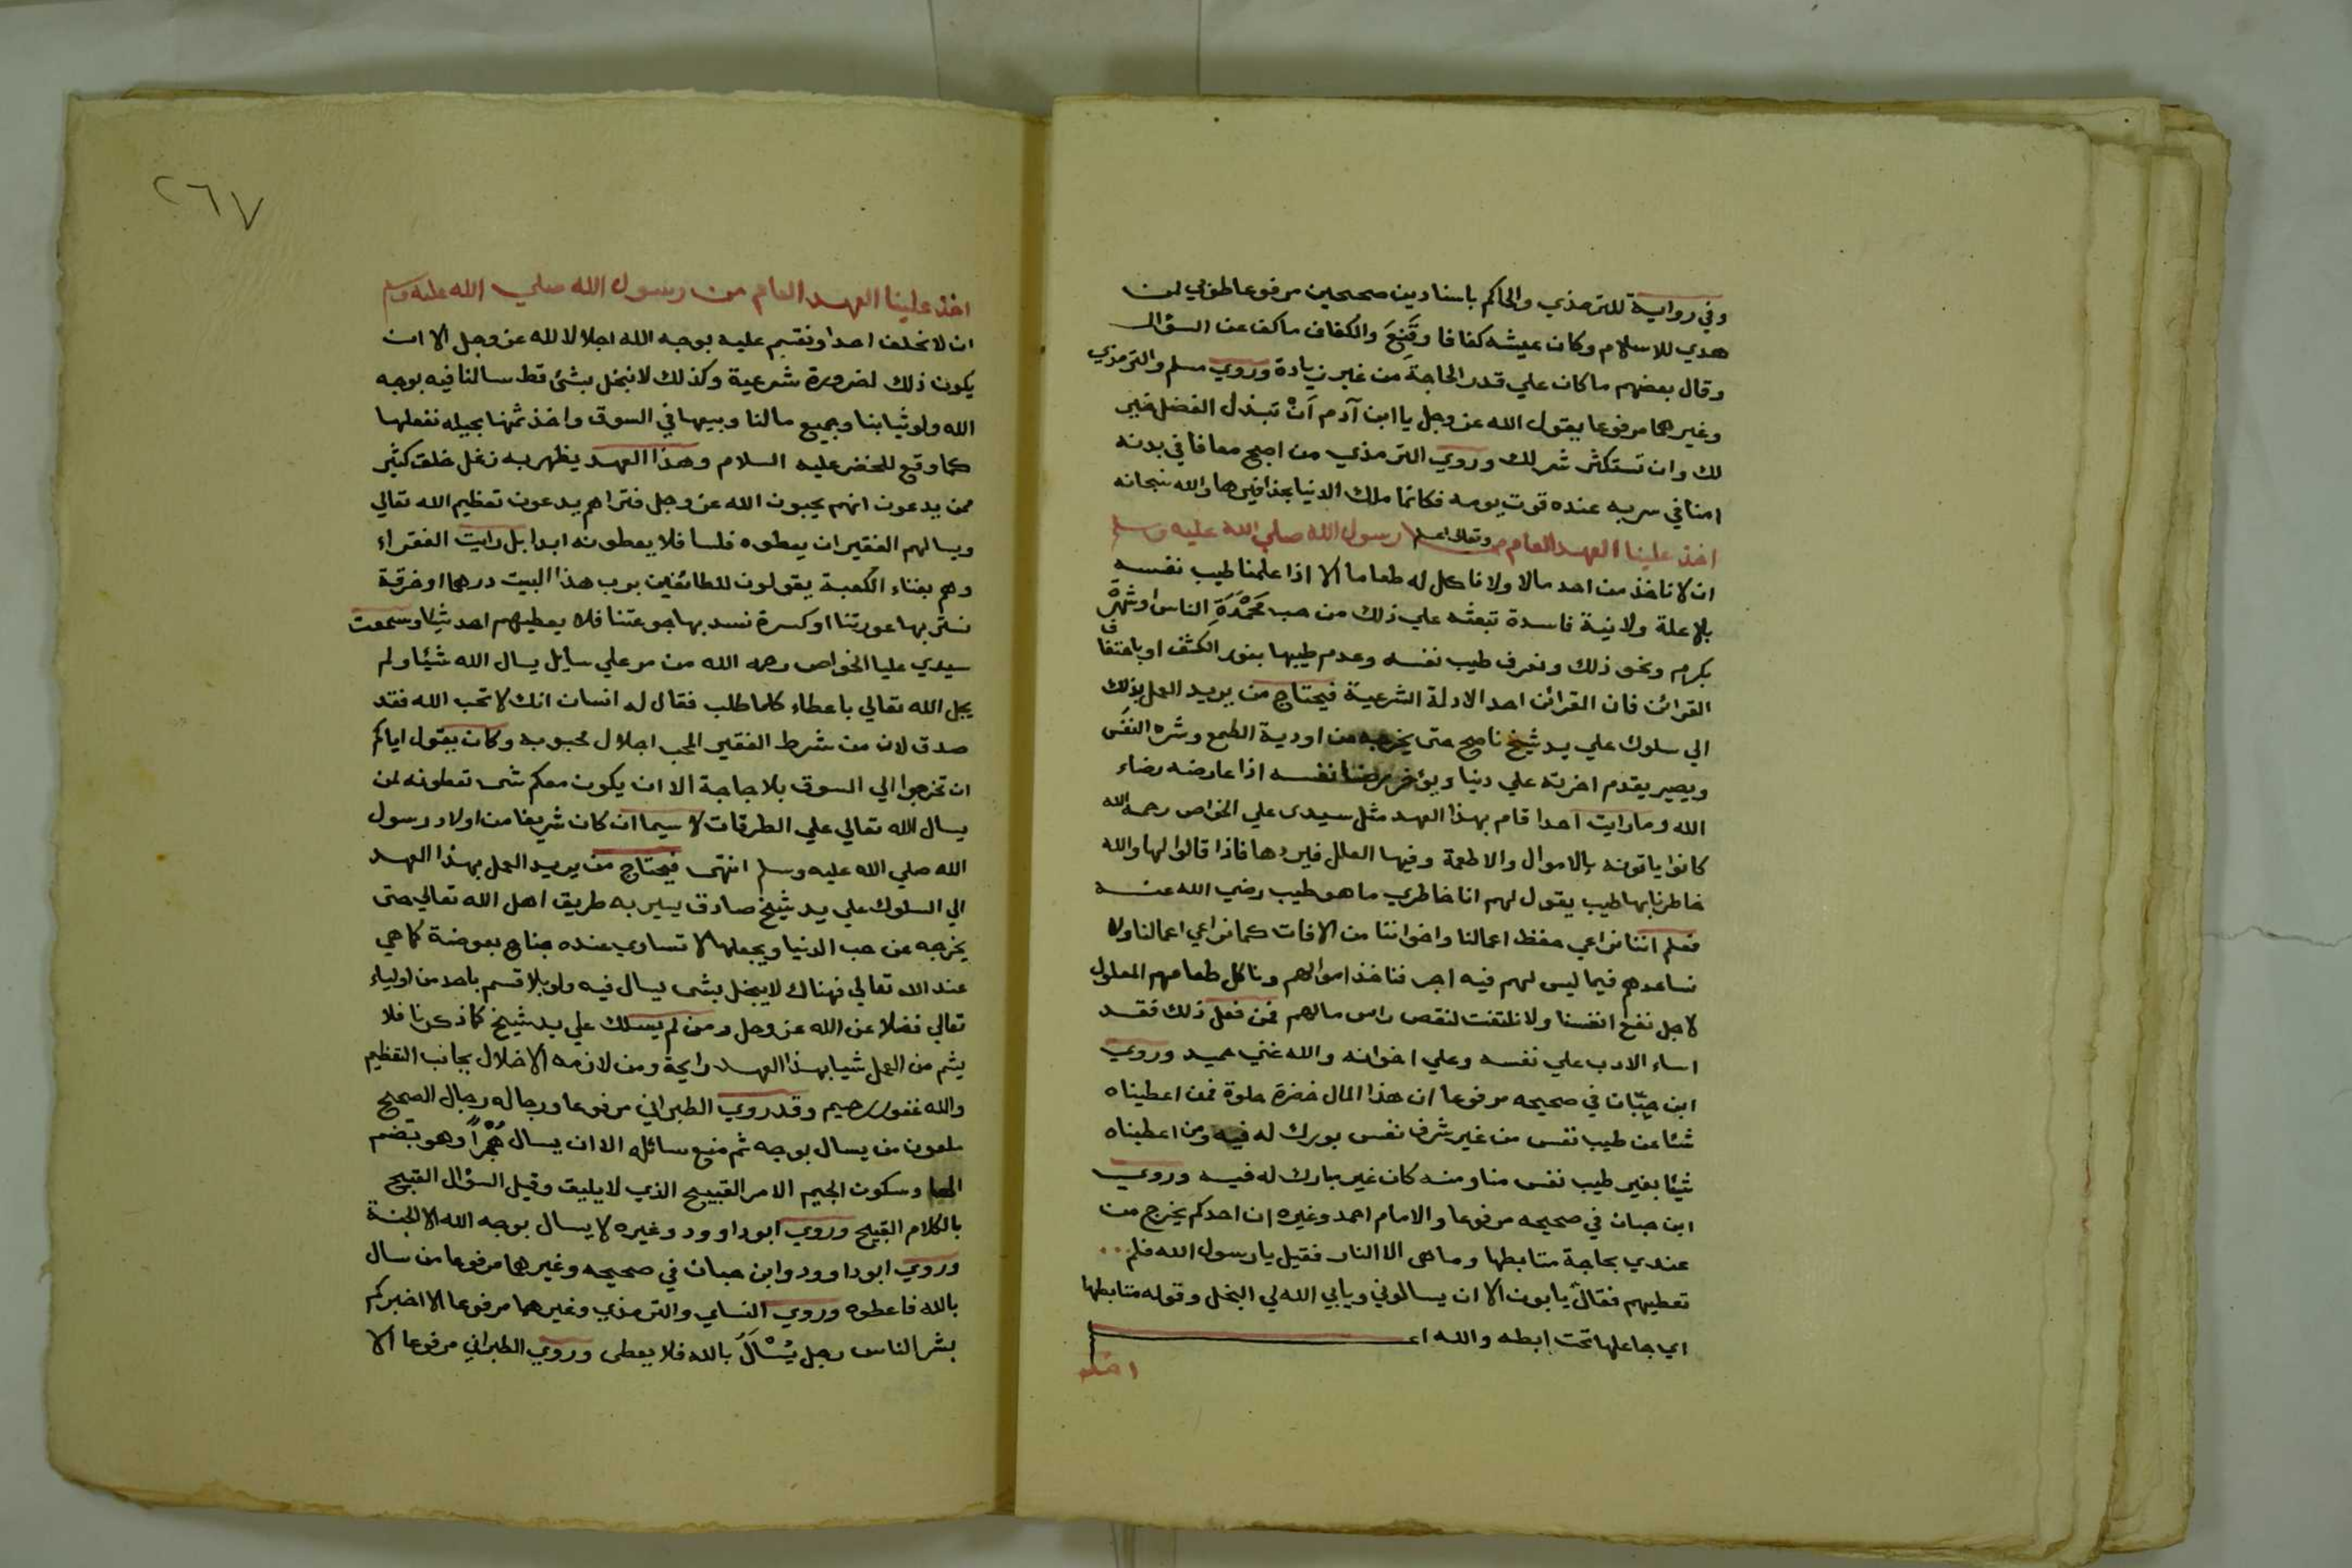 وفي رواية للترمذي والحاكم باسنادين صحيحين مرفوعا طوبي لمن
هدي للاسلام وكان عيشه كفافا وقَنِعَ والكفاف ماكف عن السؤال
وقال بعضهم ما كان علي قدر الحاجة من غير زيادة وروي مسلم والترمذي
وغيرهما مرفوعا يقول الله عز وجل يا ابن آدم اَنْ تبذل الفضل خير
لك وان تستكثر شر لك وروي الترمذي من اصبح معافا في بدنه
امنا في سربه عنده قوت يومه فكانما ملك الدنيا بحذافيرها والله سبحانه
وتعالى اعلم
اخذ علينا العهد العام من رسول الله صلي الله عليه وسلم
ان لا ناخذ من احد مالا ولا ناكل له طعاما الا اذا علمنا طيب نفسه
بلا علة ولا نية فاسدة تبعثه علي ذلك من حب مَحْمَدَةِ الناس او شهرة
بكرم ونحو ذلك ونعرف طيب نفسه وعدم طيبها بنور الكشف او باحتفاف
القرائن فان القرائن احد الادلة الشرعية فيحتاج من يريد العمل بذلك
الي سلوك علي يد شيخ ناصح حتى يخرجه من اودية الطمع وشره النفس
ويصير يقدم اخرته علي دنياه ويؤخر رضا نفسه اذا عارضه رضاء
الله وما رايت احدا قام بهذا العهد مثل سيدى علي الخواص رحمه الله
كانوا ياتونه بالاموال والاطعمة وفيها العلل فيردها فاذا قالوا لها والله
خاطرنا بها طيب يقول لهم انا خاطري ما هو طيب رضي الله عنه
فعلم اننا نراعي حفظ اعمالنا واخواننا من الافات كما نراعي اعمالنا ولا
نساعدهم فيما ليس لهم فيه اجر فناخذ اموالهم وناكل طعامهم المعلول
لاجل نفع انفسنا ولا نلتفت لنقص راس مالهم فمن فعل ذلك فقد
اساء الادب علي نفسه وعلي اخوانه والله غني حميد وروي
ابن حِبّان في صحيحه مرفوعا ان هذا المال خضرة حلوة فمن اعطيناه
شئا عن طيب نفس من غير شرف نفس بورك له فيه ومن اعطيناه
شيئا بغير طيب نفس منا ومنه كان غير مبارك له فيه وروي
ابن حبان في صحيحه مرفوعا والامام احمد وغيره ان احدكم يخرج من
عندي بحاجة متابطها وما هى الا النار فقيل يا رسول الله فلم
تعطيهم فقال يابون الا ان يسالوني ويابي الله لي البخل وقوله متابطها
اي جاعلها تحت ابطه والله اعـ
اخذ
٢٦٧
اخذ علينا العهد العام من رسول الله صلي الله عليه وسلم
ان لا نحلف احدا ونقسم عليه بوجه الله اجلالا لله عز وجل الا ان
يكون ذلك لضرورة شرعية وكذلك لا نبخل بشئ قط سالنا فيه بوجه
الله ولو ثيابنا وجميع مالنا وبيعها في السوق واخذ ثمنها بحيله نفعلها
كما وقع للخضر عليه السلام وهذا العهد يظهر به زغل خلق كثير
ممن يدعون انهم يحبون الله عز وجل فتراهم يدعون تعظيم الله تعالي
ويسالهم الفقير ان يعطوه فلسا فلا يعطونه ابدا بل رايت الفقراء
وهم بفناء الكعبة يقولون للطائفين برب هذا البيت درهما او خرقة
نستر بها عورتنا او كسرة نسد بها جوعتنا فلا يعطيهم احد شيئا وسمعت
سيدي عليا الخواص رحمه الله من مر علي سايل يسال الله شيئا ولم
يجل الله تعالي باعطاء كلما طلب فقال له انسان انك لا تحب الله فقد
صدق لان من شرط الفقير المحب اجلال محبوبه وكان يقول اياكم
ان تخرجوا الي السوق بلا حاجة الا ان يكون معكم شى تعطونه لمن
يسال الله تعالي علي الطرقات لا سيما ان كان شريفا من اولاد رسول
الله صلي الله عليه وسلم انتهى فيحتاج من يريد العمل بهذا العهد
الي السلوك علي يد شيخ صادق يسير به طريق اهل الله تعالي حتى
يخرجه عن حب الدنيا ويجعلها لا تساوي عنده جناح بعوضة كما هي
عند الله تعالي فهناك لا يبخل بشى يسال فيه ولو بلا قسم باحد من اولياء
تعالي فضلا عن الله عز وجل ومن لم يسلك علي يد شيخ كما ذكرنا فلا
يشم من العمل شيا بهذا العهد رايحة ومن لازمه الاخلال بجانب التعظيم
والله غفور رحيم وقد روي الطبراني مرفوعا ورجاله رجال الصحيح
ملعون من يسال بوجه ثم منع سائله الا ان يسال هُجْراً وهو بضم
الها وسكون الجيم الامر القبيح الذي لا يليق وقيل السؤال القبيح
بالكلام القبيح وروي ابو داوود وغيره لا يسال بوجه الله الا الجنة
وروي ابو داوود وابن حبان في صحيحه وغيرهما مرفوعا من سال
بالله فاعطوه وروي النساي والترمذي وغيرهما مرفوعا الا اخبركم
بشر الناس رجل يُسْألُ بالله فلا يعطى وروي الطبراني مرفوعا الا